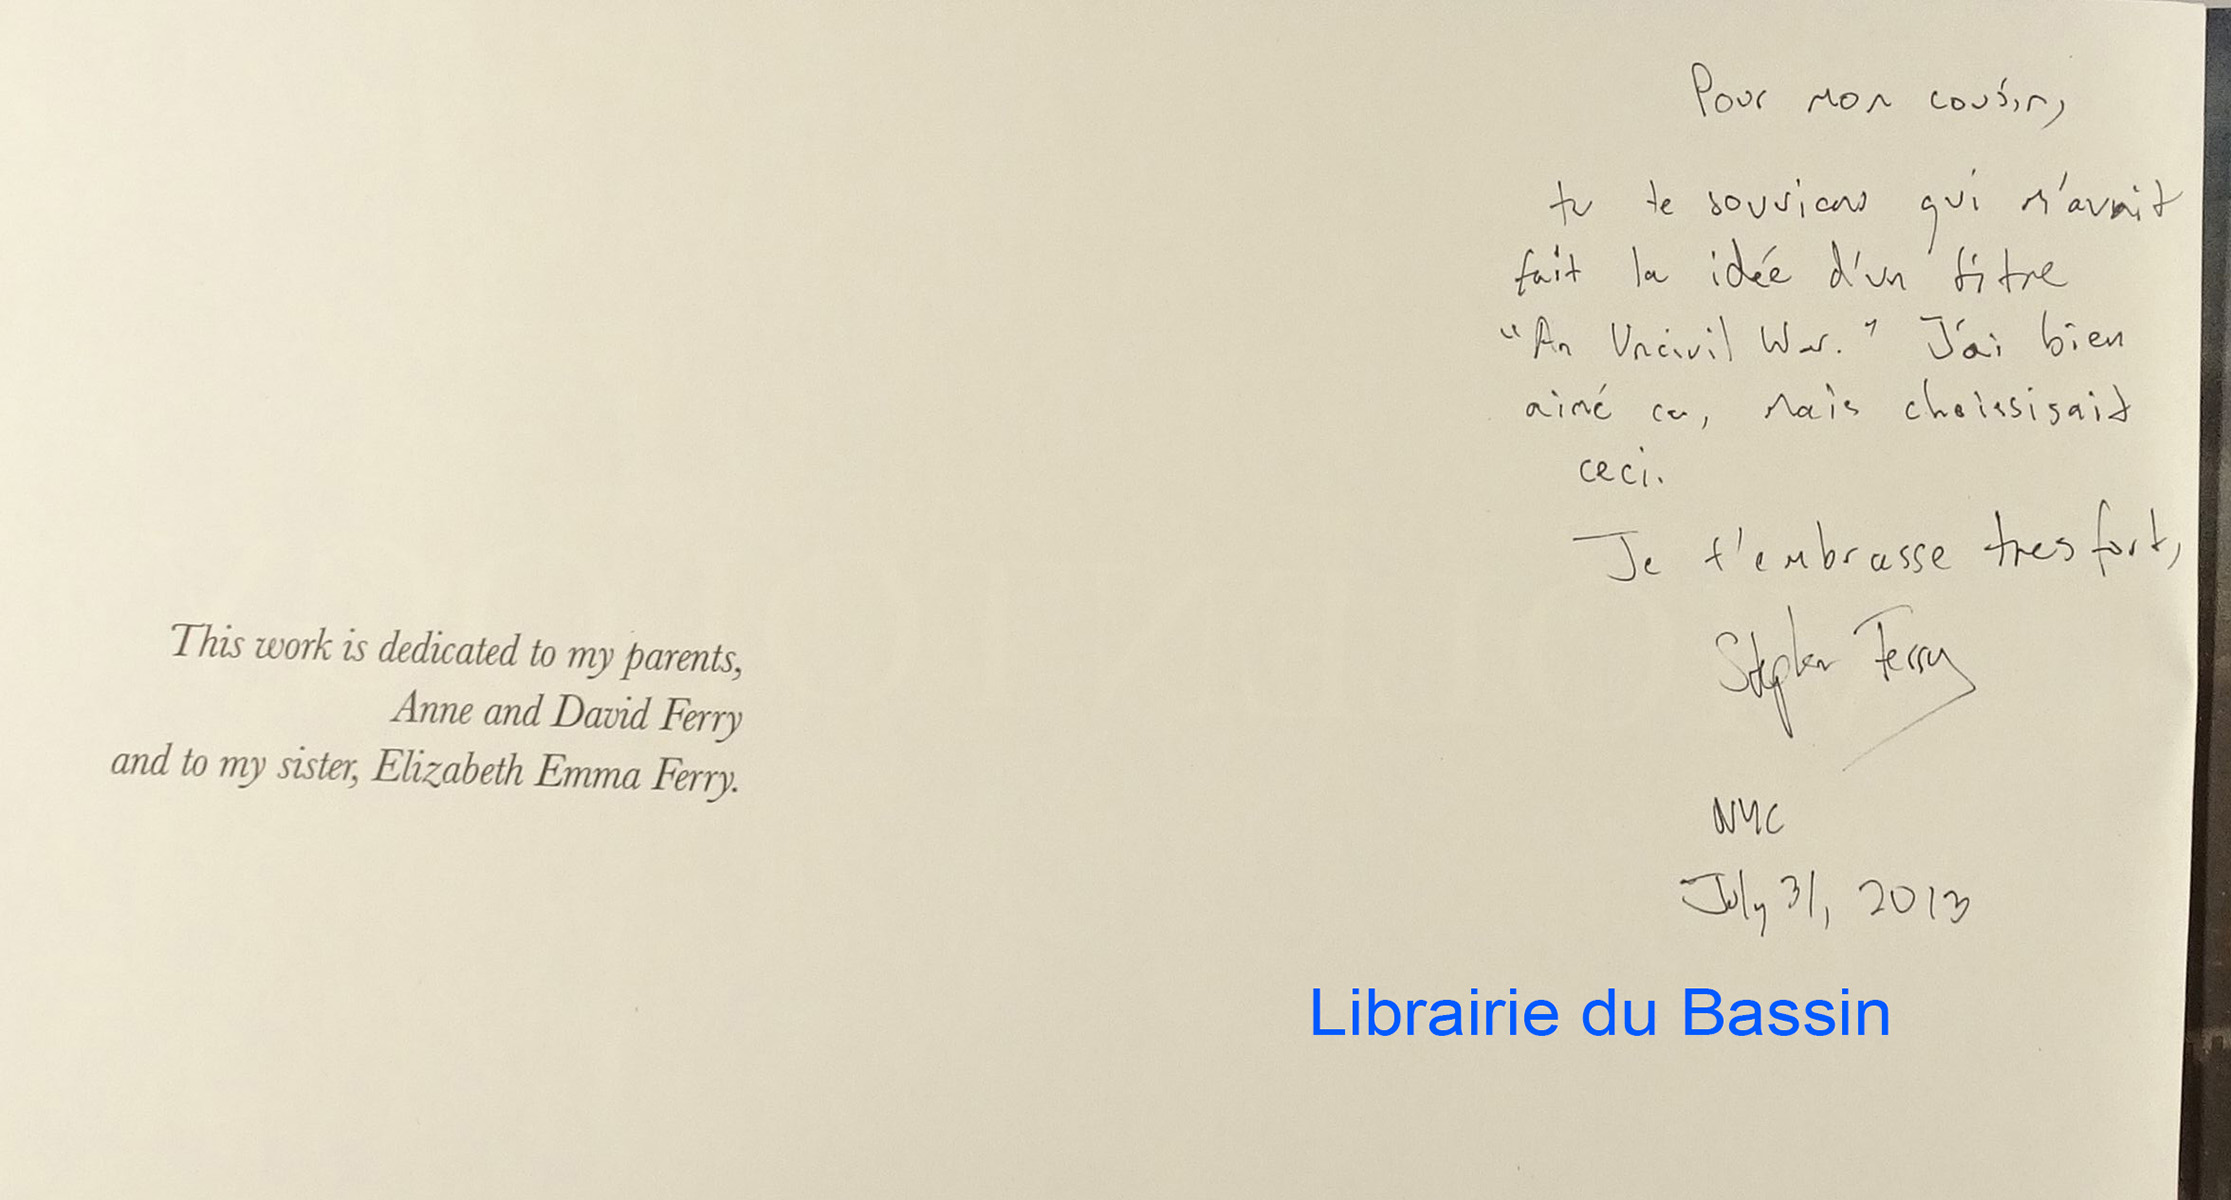 This work is dedicated to my parents,
Anne and David Ferry
and to my sister, Elizabeth Emma Ferry.
Pour mon cousin,
tu te souviens qui m'avait
fait la idée d'un titre
"An Uncivil War." J'ai bien
aimé ca, mais choissisait
ceci.
Je t'embrasse tres fort,
Stephen Ferry
NYC
July 31, 2013
Librairie du Bassin